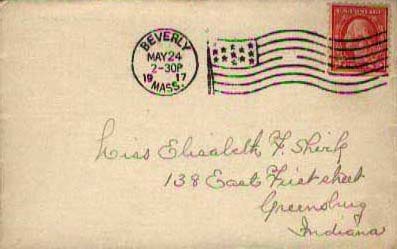 BEVERLY
MAY 24
2-30P
19 17
MASS.
Miss Elisabeth F. Shirk
138 East First street
Greensburg
Indiana